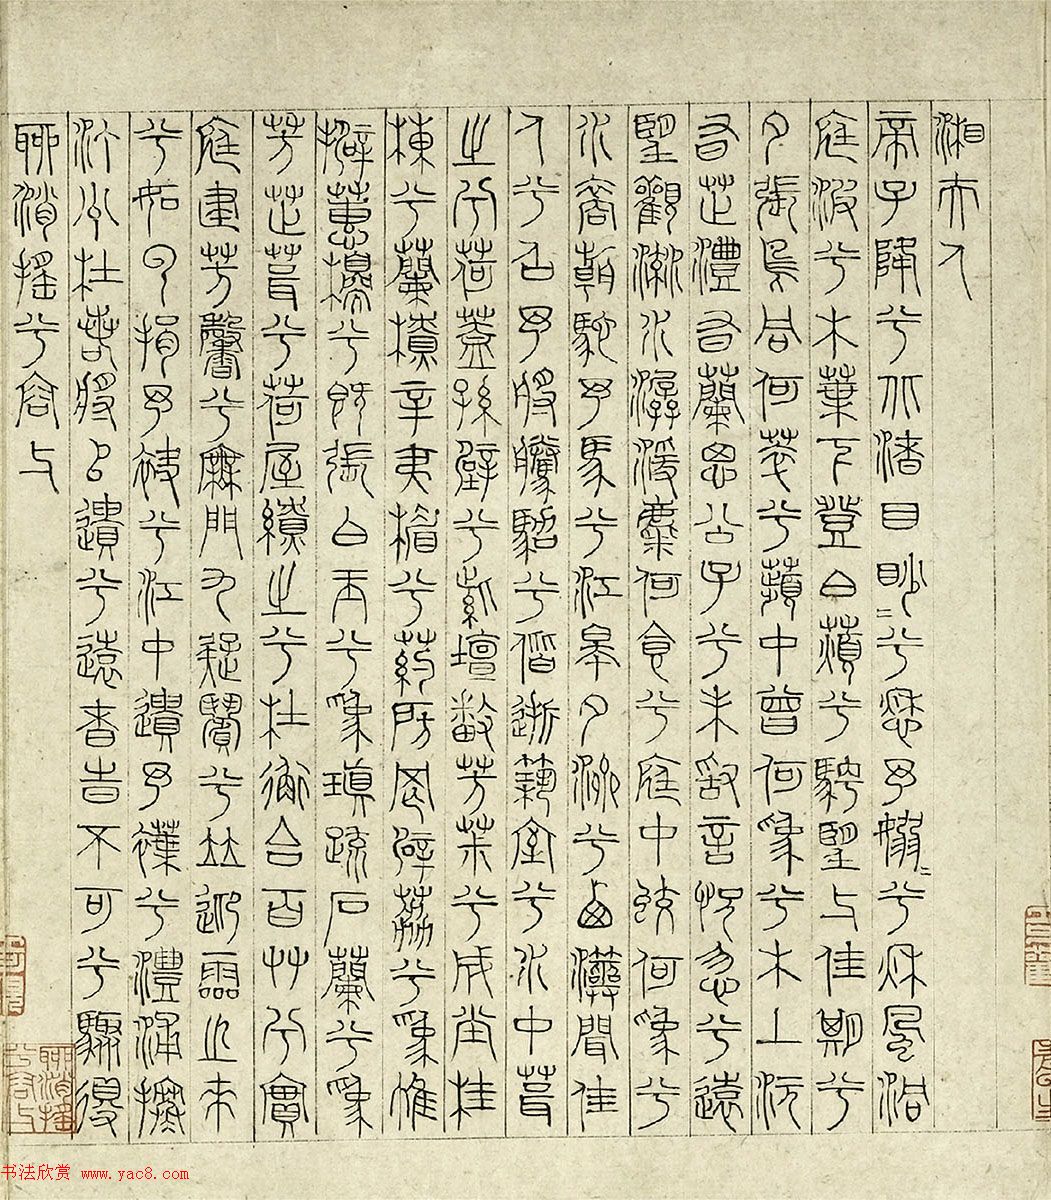 湘夫人
帝子降兮北渚目眇=兮愁予嫋=兮秋風洞
庭波兮木葉下登白薠兮騁望与佳期兮
夕張鳥何萃兮蘋中罾何為兮木上沅
有茝澧有蘭思公子兮未敢言怳忽兮遠
望觀流水潺湲麋何食兮庭中蛟何為兮
水裔朝馳予馬兮江皋夕濟兮西澨聞佳
人兮召予將騰駕兮偕逝築室兮水中葺
之兮荷蓋蓀壁兮紫壇播芳椒兮成堂桂
棟兮蘭橑辛夷楣兮葯房罔薜荔兮為帷
擗蕙櫋兮既張白玉兮為瑱疏石蘭兮為
芳芷葺兮荷屋繚之兮杜衡合百草兮實
庭建芳馨兮廡門九疑繽兮並迎靈之來
兮如雲捐予袂兮江中遺予褋兮澧浦搴
汀洲杜若將以遺兮遠者時不可兮驟得
聊逍遙兮容与
聊逍遙兮容与
书法欣赏 www.yac8.com